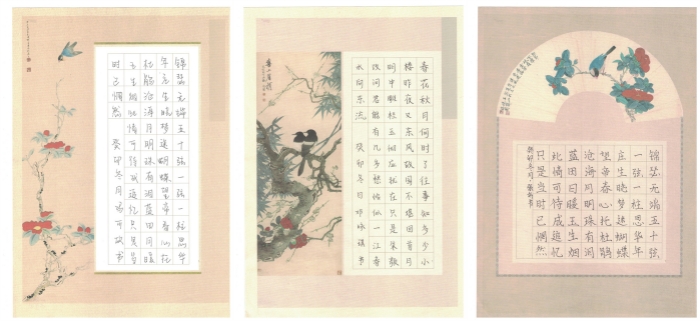 锦瑟无端五十弦一弦一柱思华
年庄生晓梦迷蝴蝶望帝春心托
杜鹃沧海月明珠有泪蓝田日暖
玉生烟此情可待成追忆只是当
时已惘然 癸卯冬月 可 书
春花秋月何时了往事知多少小
楼昨夜又东风故国不堪回首月
明中雕栏玉砌应犹在只是朱颜
改问君能有几多愁恰似一江春
水向东流 癸卯冬月邓咏琪书
锦瑟无端五十弦
一弦一柱思华年
庄生晓梦迷蝴蝶
望帝春心托杜鹃
沧海月明珠有泪
蓝田日暖玉生烟
此情可待成追忆
只是当时已惘然
癸卯冬月 书